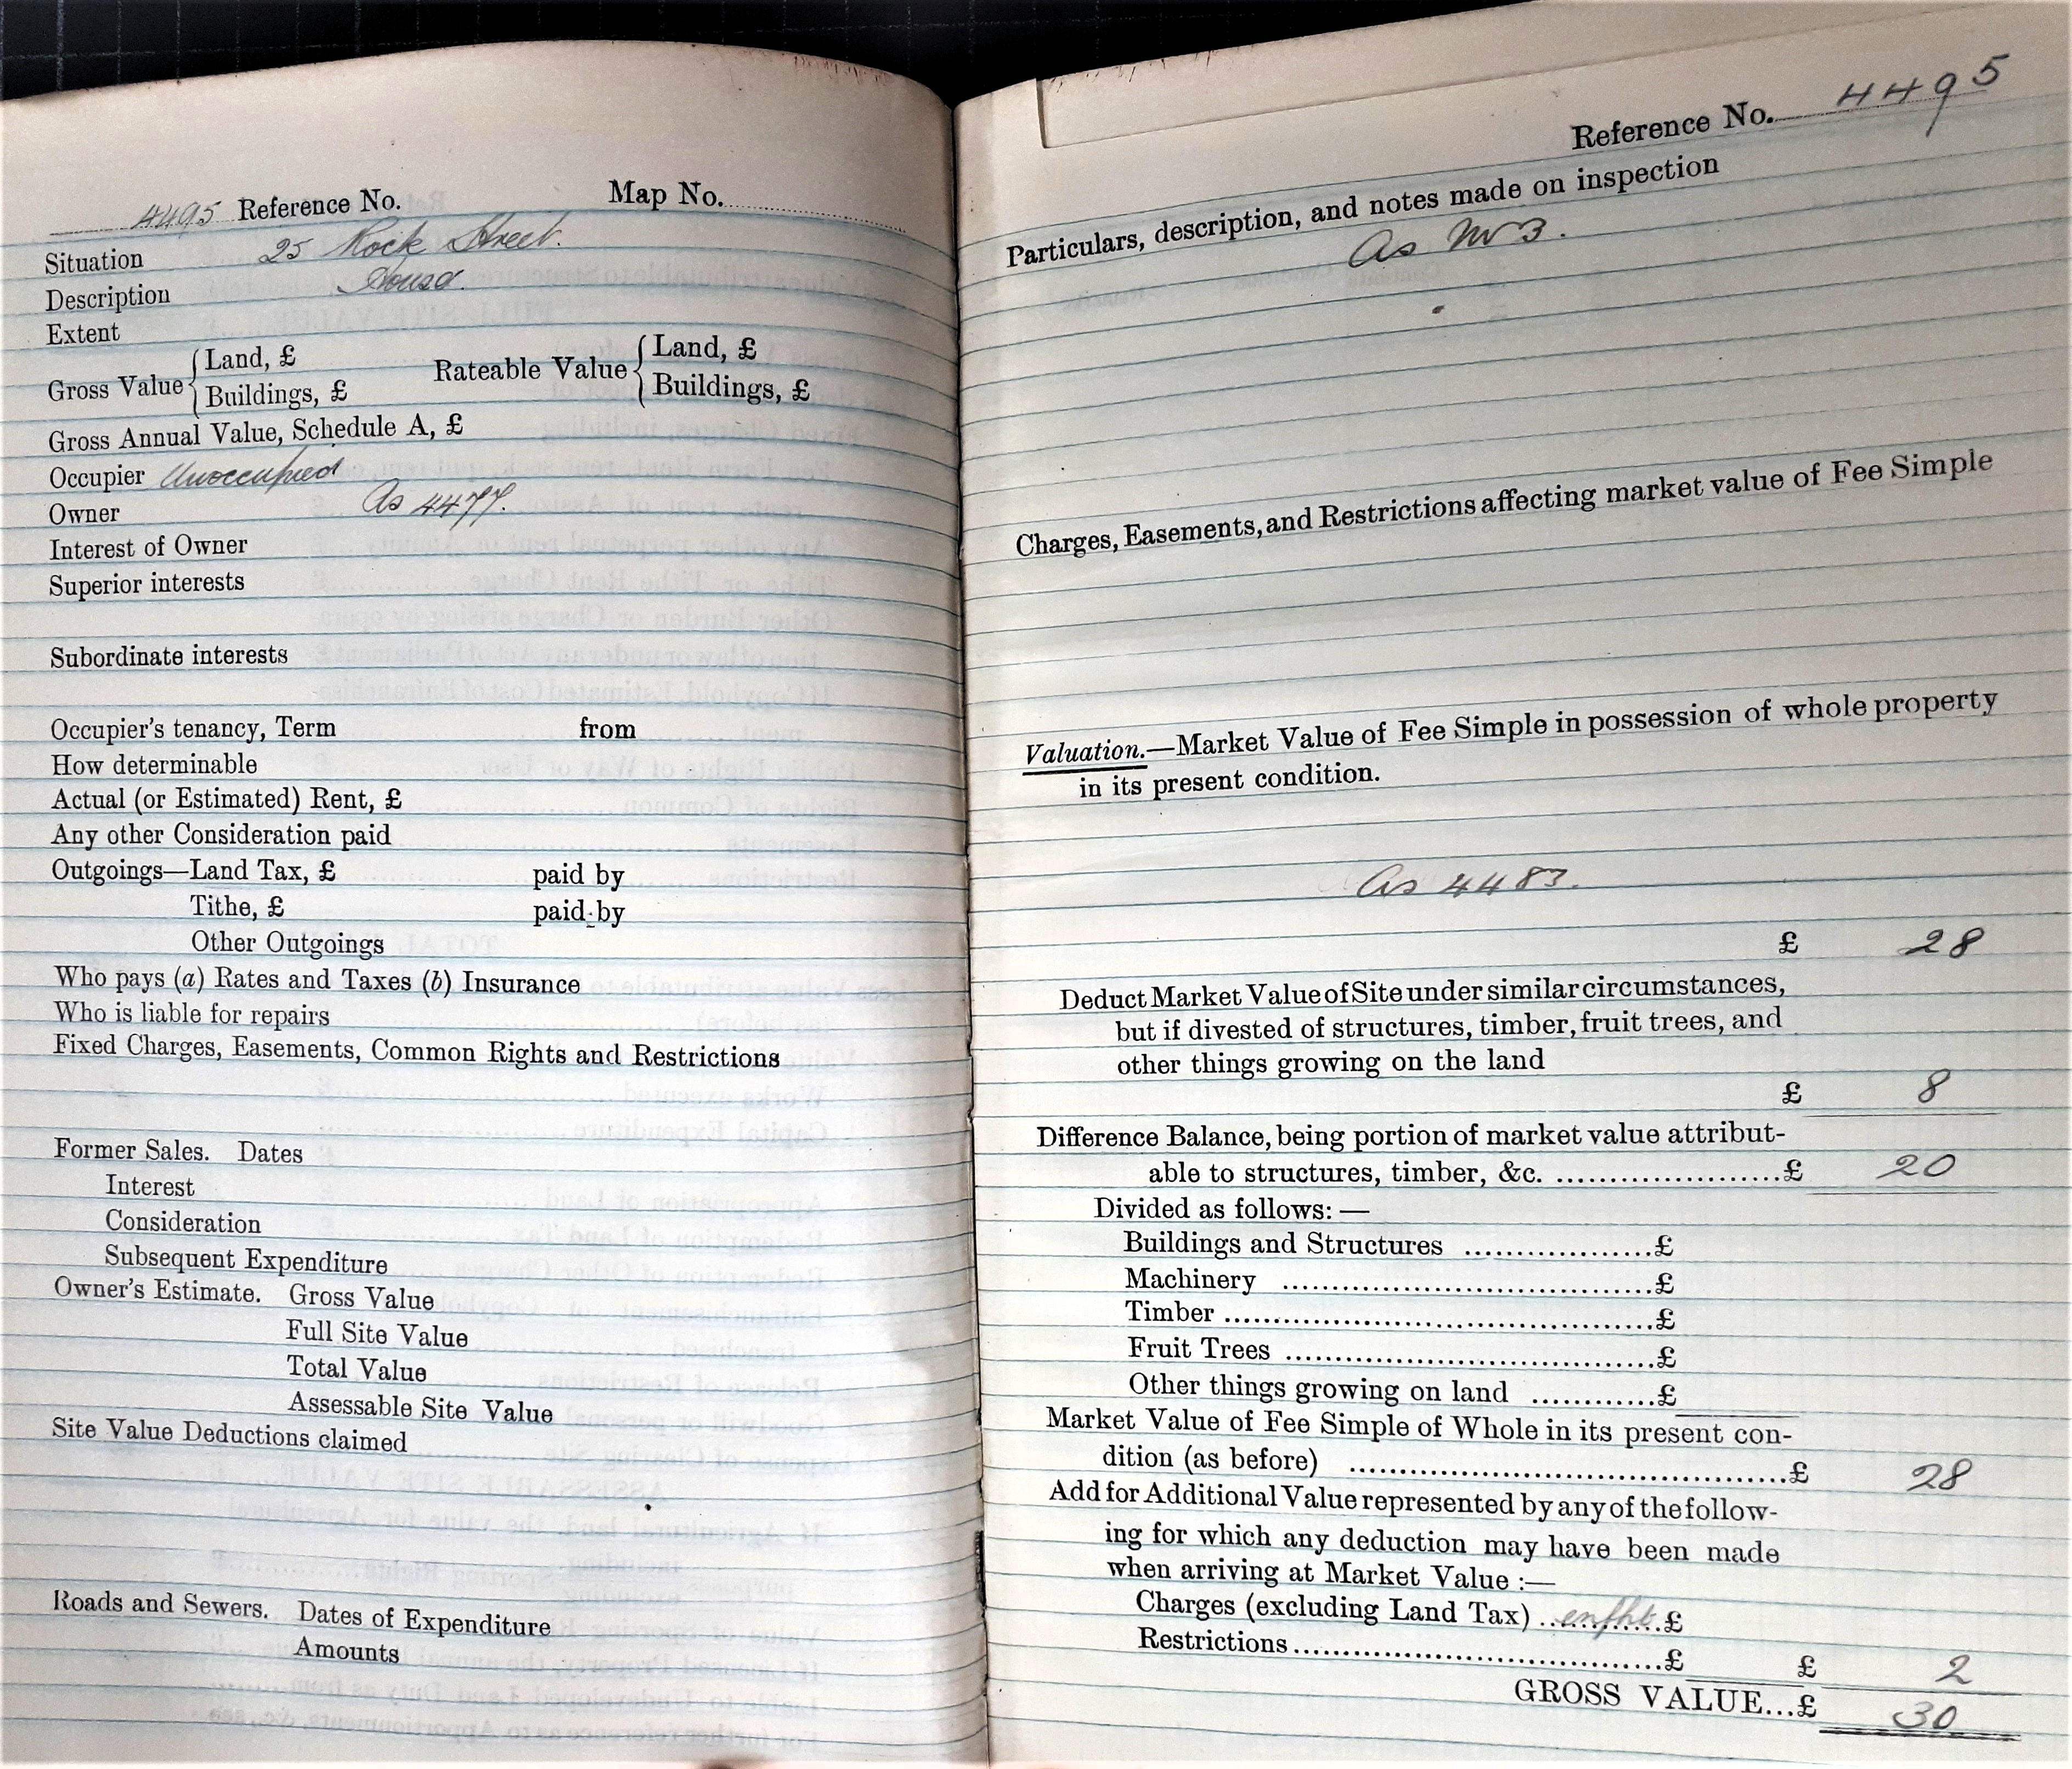 4495 Reference No. Map No.
Situation 25 Rock Street.
Description House.
Extent
Gross Value { Land, £ Rateable Value { Land, £
Buildings, £ Buildings, £
Gross Annual Value, Schedule A, £
Occupier Unoccupied
Owner As 4477.
Interest of Owner
Superior interests
Subordinate interests
Occupier's tenancy, Term from
How determinable
Actual (or Estimated) Rent, £
Any other Consideration paid
Outgoings—Land Tax, £ paid by
Tithe, £ paid by
Other Outgoings
Who pays (a) Rates and Taxes (b) Insurance
Who is liable for repairs
Fixed Charges, Easements, Common Rights and Restrictions
Former Sales. Dates
Interest
Consideration
Subsequent Expenditure
Owner's Estimate. Gross Value
Full Site Value
Total Value
Assessable Site Value
Site Value Deductions claimed
Roads and Sewers. Dates of Expenditure
Amounts
Reference No. 4495
Particulars, description, and notes made on inspection
As No 3.
Charges, Easements, and Restrictions affecting market value of Fee Simple
Valuation.—Market Value of Fee Simple in possession of whole property
in its present condition.
As 4483.
£ 28
Deduct Market Value of Site under similar circumstances,
but if divested of structures, timber, fruit trees, and
other things growing on the land
£ 8
Difference Balance, being portion of market value attribut-
able to structures, timber, &c. ......................£ 20
Divided as follows:—
Buildings and Structures ..................£
Machinery ....................................£
Timber..........................................£
Fruit Trees ....................................£
Other things growing on land ............£
Market Value of Fee Simple of Whole in its present con-
dition (as before) ...........................................£ 28
Add for Additional Value represented by any of the follow-
ing for which any deduction may have been made
when arriving at Market Value :—
Charges (excluding Land Tax) ..enfht..£
Restrictions....................................£ £ 2
GROSS VALUE...£ 30